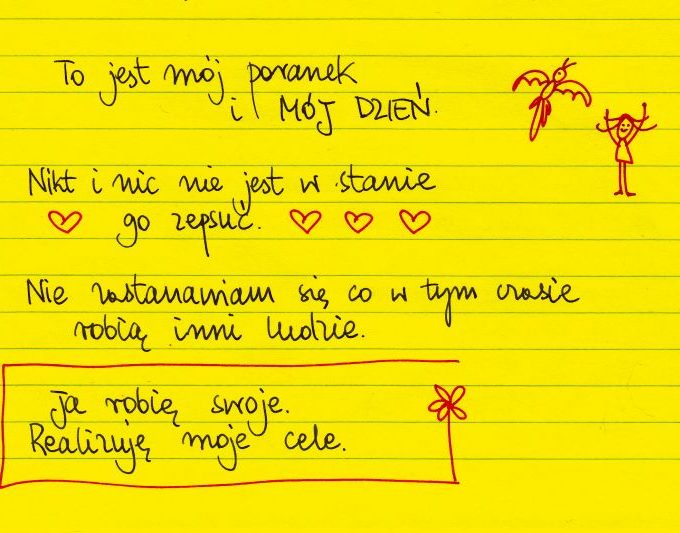 To jest mój poranek
i MÓJ DZIEŃ.
Nikt i nic nie jest w stanie
go zepsuć.
Nie zastanawiam się co w tym czasie
robią inni ludzie.
Ja robię swoje.
Realizuję moje cele.